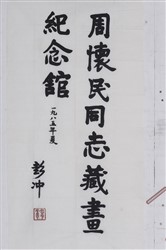 周懷民同志藏畫
紀念館
一九八五年夏
彭冲